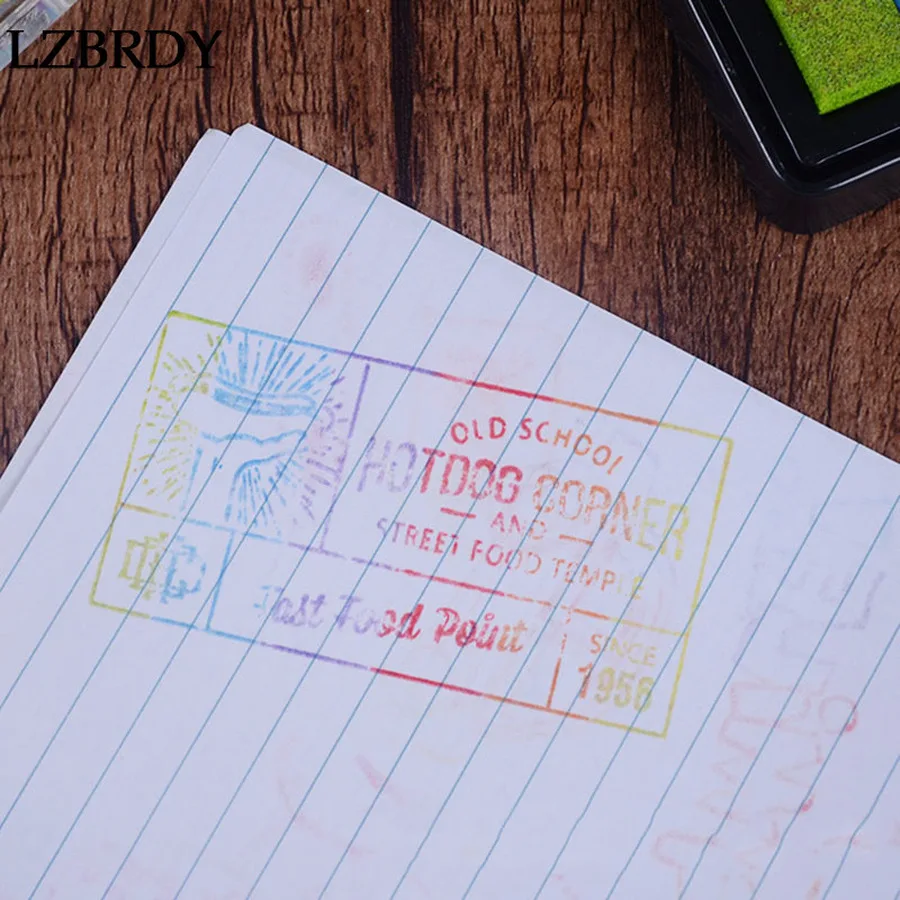 LZBRDY
OLD SCHOOL
HOTDOG CORNER
AND
STREET FOOD TEMPLE
Fast Food Point
SINCE
1956